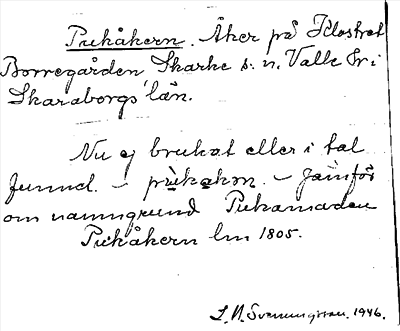 Pukåkern. Åker på Klostret
Borregården, Skarke s:n. Valle Hr i
Skaraborgs län.
Nu ej brukat eller i tal
funnet. – pukakrn. – Jämför
om namngrund Pukamaden
Pukåkern lm 1805.
1946.